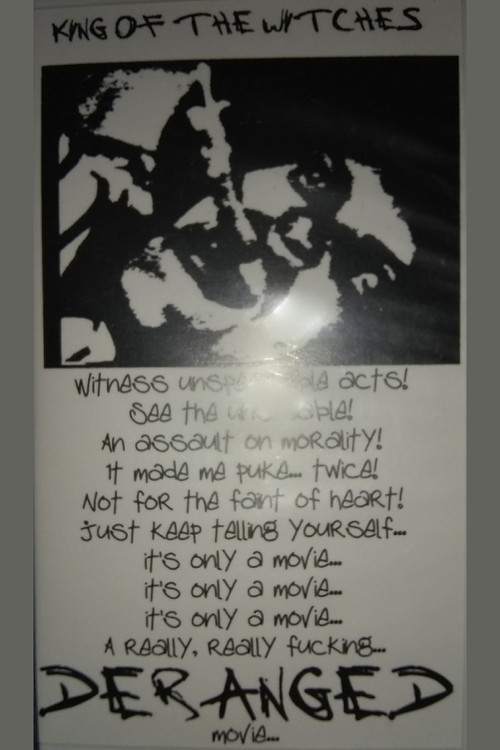 KING OF THE WITCHES
Witness acts!
See the
An assault on morality!
It made me puke... twice!
Not for the faint of heart!
Just keep telling yourself...
it's only a movie...
it's only a movie...
it's only a movie...
A really, really fucking...
DERANGED
movie...